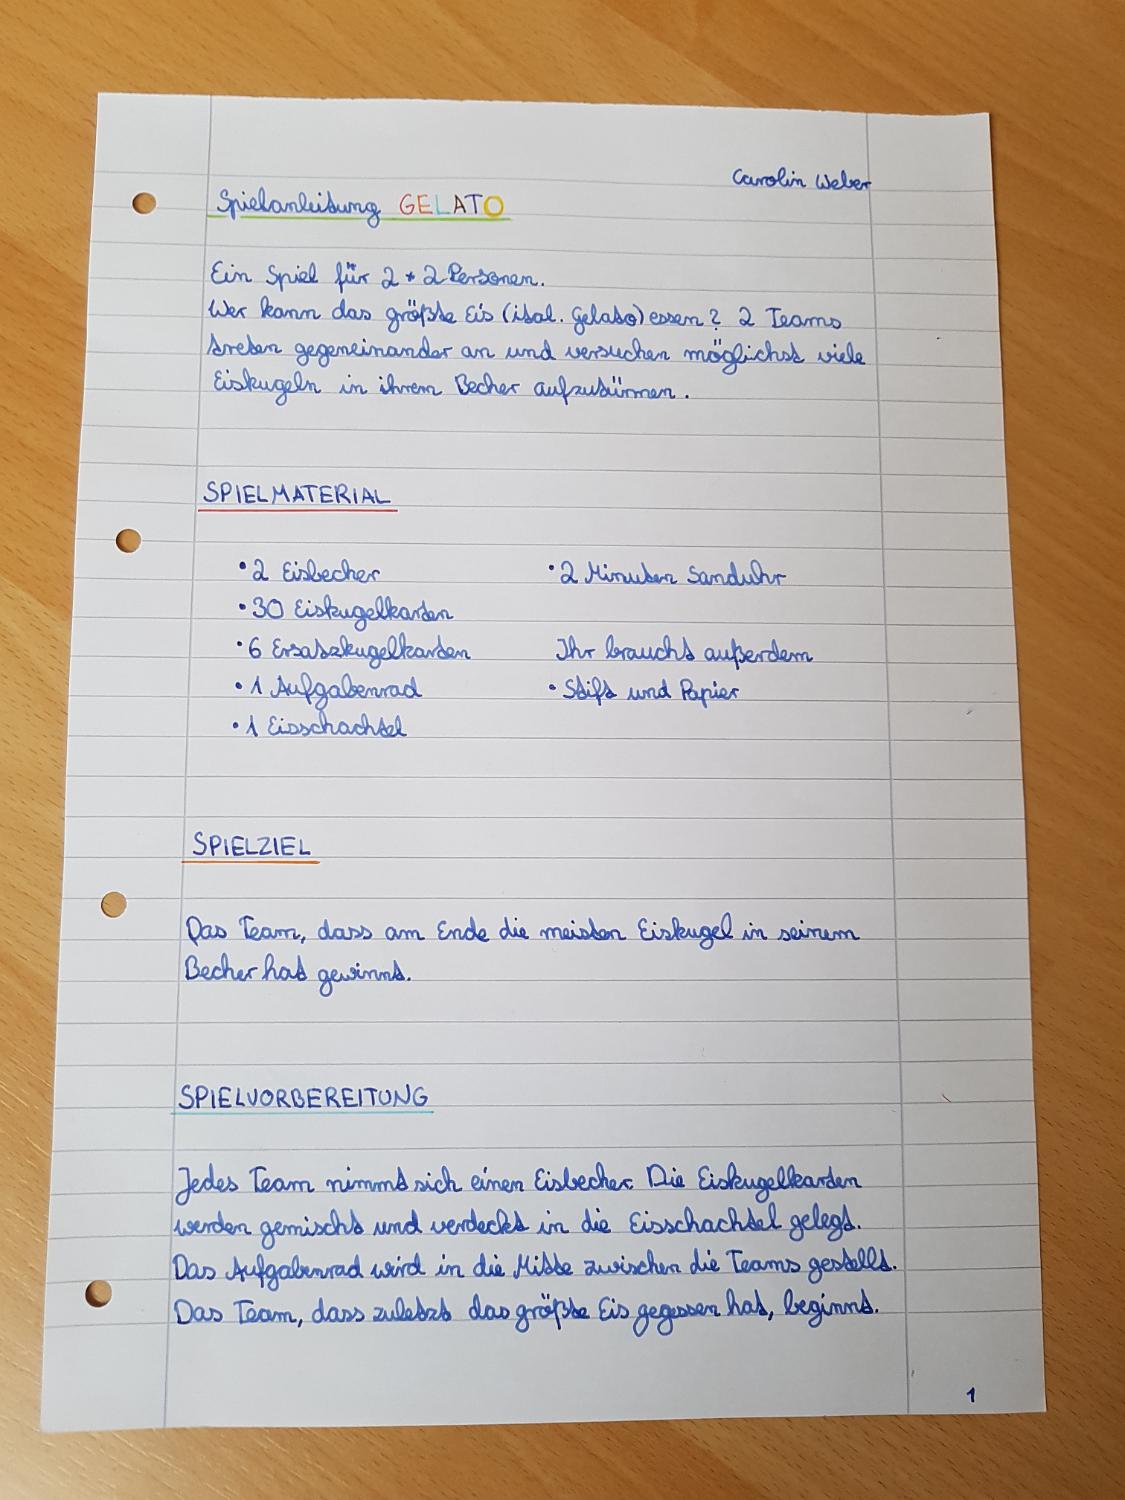 Carolin Weber
Spielanleitung GELATO
Ein Spiel für 2 + 2 Personen.
Wer kann das größte Eis (ital. Gelato) essen? 2 Teams
treten gegeneinander an und versuchen möglichst viele
Eiskugeln in ihrem Becher aufzutürmen.
SPIELMATERIAL
• 2 Eisbecher
• 30 Eiskugelkarten
• 6 Ersatzkugelkarten
• 1 Aufgabenrad
• 1 Eisschachtel
• 2 Minuten Sanduhr
Ihr braucht außerdem
• Stift und Papier
SPIELZIEL
Das Team, dass am Ende die meisten Eiskugel in seinem
Becher hat gewinnt.
SPIELVORBEREITUNG
Jedes Team nimmt sich einen Eisbecher. Die Eiskugelkarten
werden gemischt und verdeckt in die Eisschachtel gelegt.
Das Aufgabenrad wird in die Mitte zwischen die Teams gestellt.
Das Team, dass zuletzt das größte Eis gegessen hat, beginnt.
1